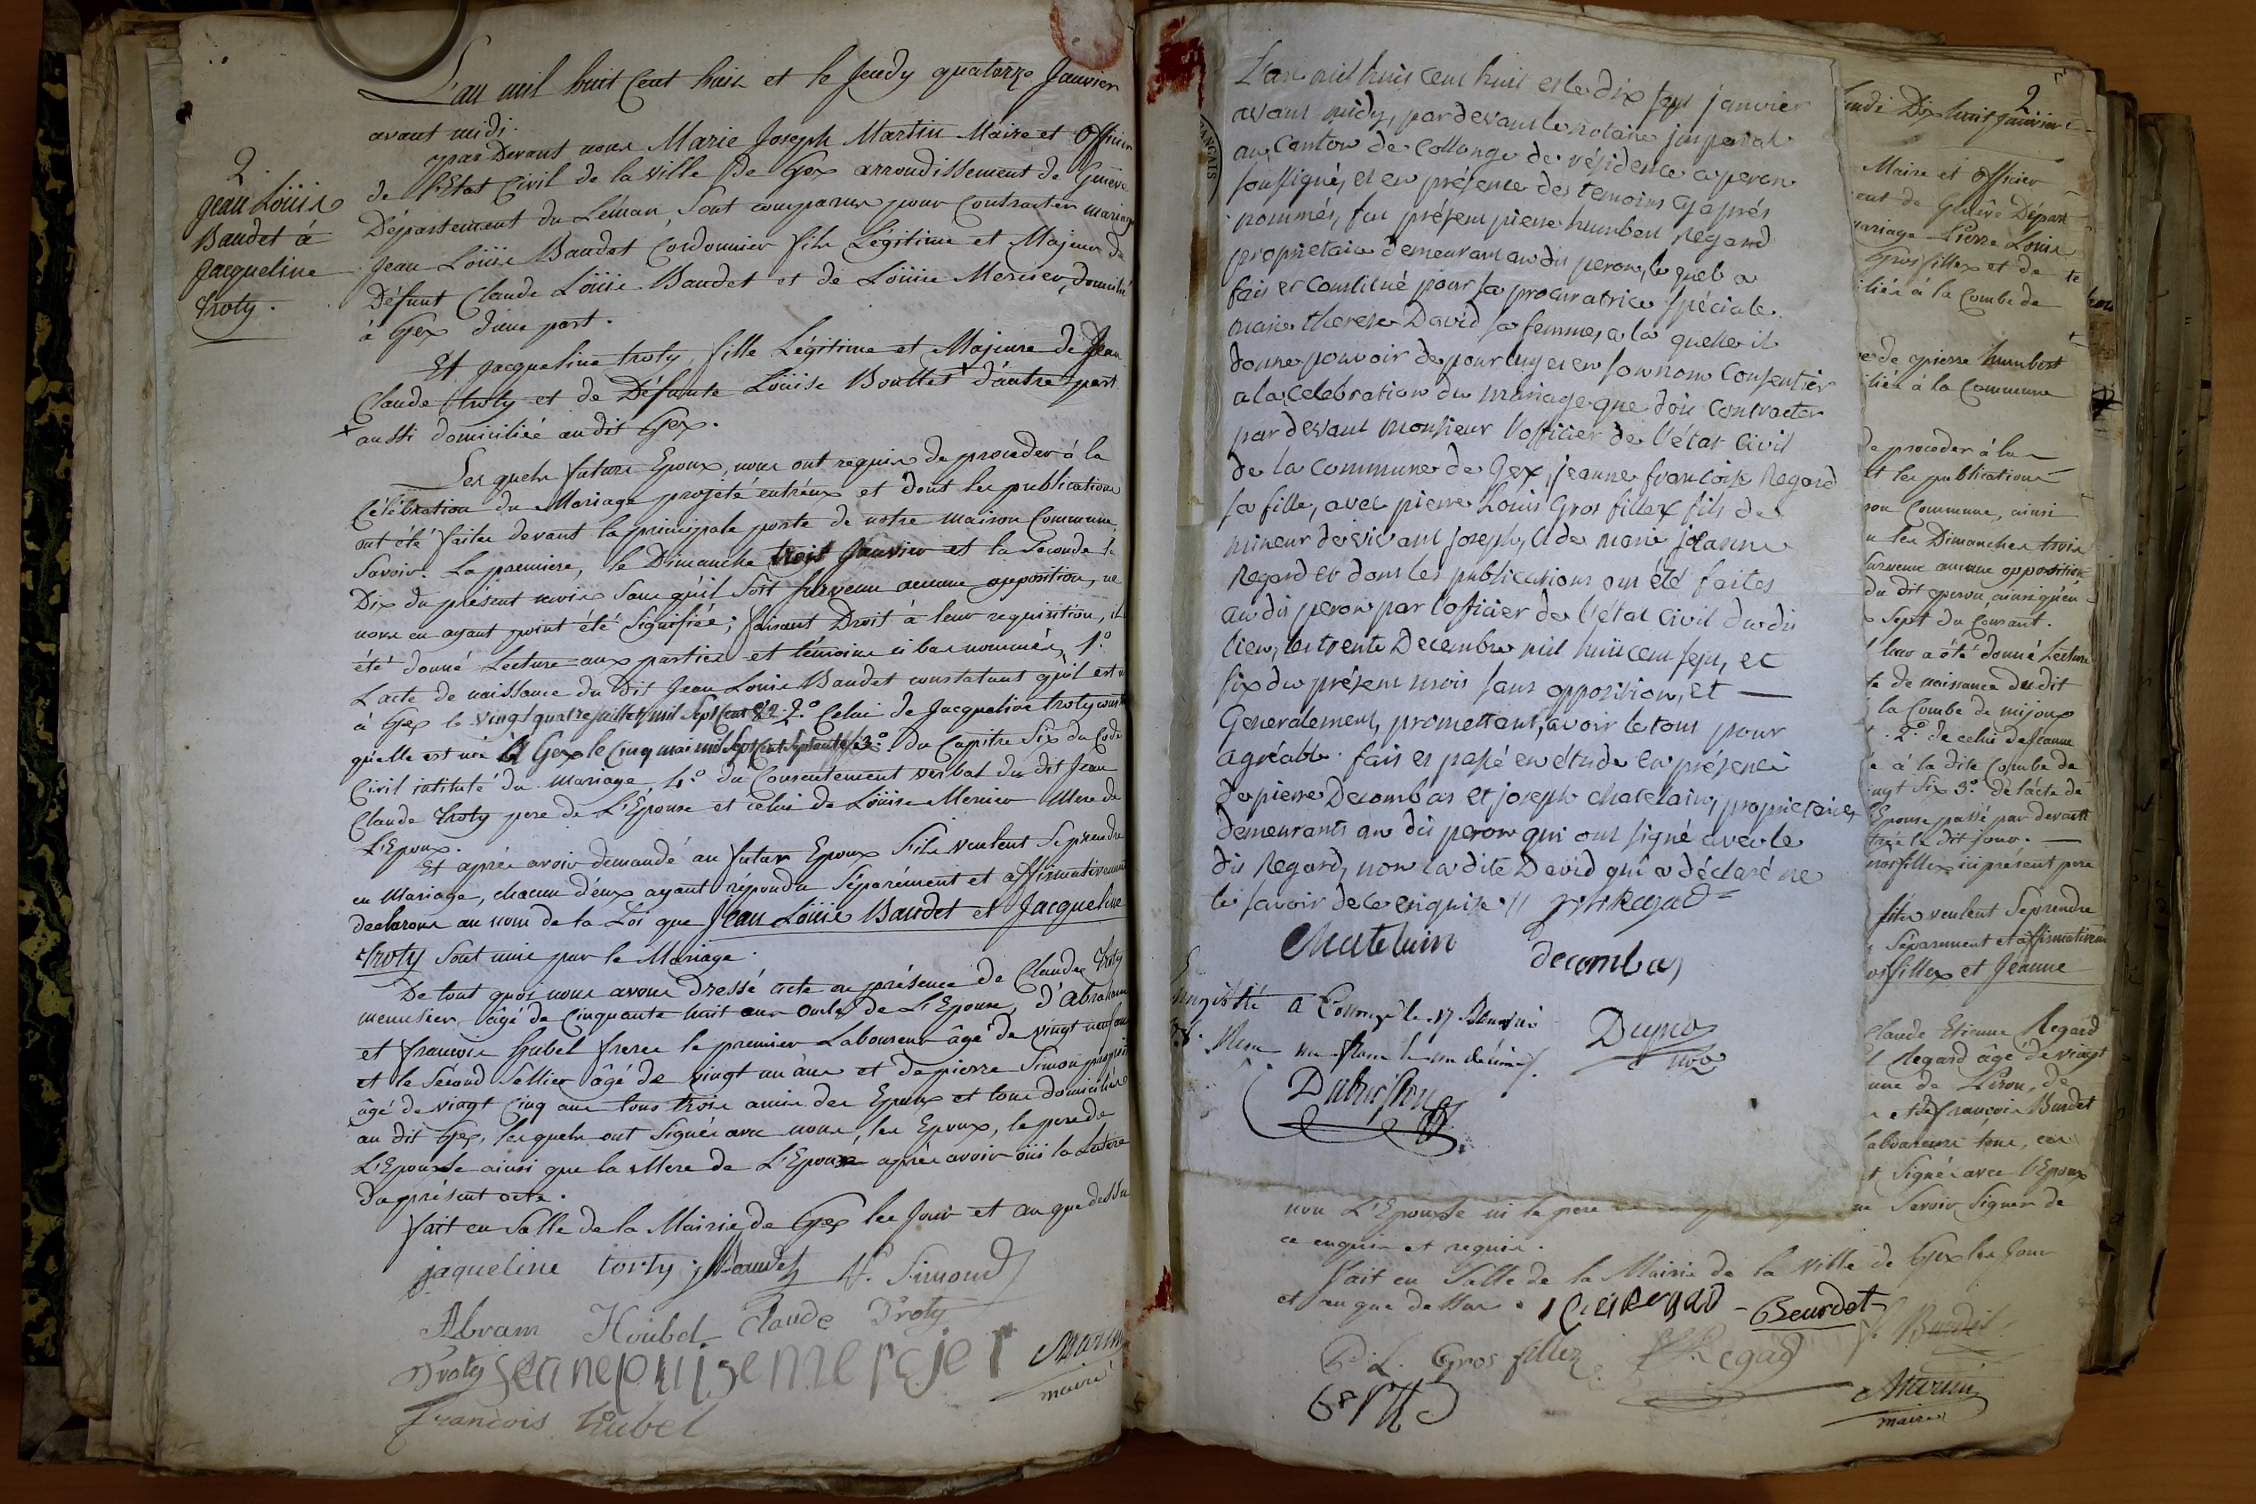 L'an mil huit Cent huit et le Jeudy quatorze Janvier
avant midi.
par Devant nous Marie Joseph Martin Maire et Officier
de l'Etat Civil de la ville de Gex arrondissement de Genève
Département du Léman, Sont comparus pour Contracter mariage
Jean Löüis Baudet Cordonnier fils Légitime et Majeur de
Défunt Claude Löüis Baudet et de Löüise Mercier, domicilié
à Gex d'une part.
2
Jean Löüis
Baudet à
Jacqueline
troty.
Et Jacqueline troty, fille Légitime et Majeure de Jean
Claude troty et de Défunte Löüise Bouttet + d'autre part
+ aussi domiciliée audit Gex.
Les quels futurs Epoux, nous ont requis de proceder à la
Célébration du Mariage projeté entr'eux et dont les publications
ont été faites devant la principale porte de notre maison Commune,
Savoir. La première, le Dimanche trois Janvier et la Seconde le
Dix du présent mois Sans qu'il Soit Survenu aucune opposition, ne
nous en ayant point été Signifiée; faisant Droit à leur requisition, il
été donné Lecture aux parties et témoins ci bas nommés, 1.°
L'acte de naissance du Dit Jean Louis Baudet constatant qu'il est
à Gex le vingt quatre juillet mil Sept Cent 82. 2.° Celui de Jacqueline troty const
qu'elle est née à Gex le Cinq mai mil Sept Cent Septante 3.° du Capitre Six du Code
Civil intitulé du Mariage, 4.° du Consentement verbal du dit Jean
Claude troty pere de L'Epouse et celui de Löüise Mercier Mere de
L'Epoux.
Et après avoir demandé au futur Epoux S'ils veulent Se prendre
en Mariage, chacun d'eux ayant répondu Séparément et affirmativement
declarons au nom de la Loi que Jean Löüis Baudet et Jacqueline
troty Sont unis par le Mariage.
De tout quoi nous avons Dressé acte en présence de Claude troty
menuisier âgé de Cinquante huit ans oncle de L'Epouse, d'Abraham
et francois hubel freres le premier Laboureur âgé de vingt neuf ans
et le Second Sellier âgé de vingt un ans et de pierre Simon
âgé de vingt Cinq ans tous trois amis des Epoux et tous domiciliés
au dit Gex, lesquels ont Signés avec nous, les Epoux, le pere de
L'Epouse ainsi que la Mere de L'Epoux après avoir öüi la Lecture
du présent acte.
fait en Salle de la Mairie de Gex les Jour et an que dessus
jaqueline torty Baudet Simond
Abram Houbel Claude Troty
Troty Martin
maire
francois hubel
L'an mil huit cent huit et le dix sept janvier
avant midy, pardevant le notaire imperial
au Canton de Collonge de résidence a peron
soussigné, et en présence des temoins cy après
nommés, fut présent pierre humbert Regard
propriétaire demeurant au dit peron, le quel a
fait et constitué pour sa procuratrice spéciale
marie therese David sa femme, a la quelle il
donne pouvoir de pour luy et en son nom Consentir
a la Celebration du mariage que doit Contracter
pardevant monsieur l'officier de l'état Civil
de la commune de Gex, jeanne francoise Regard
sa fille, avec pierre Louis Gros fillex fils de
mineur de vivant joseph, et de marie jeanne
Regard et dont les publications ont été faites
au dit peron par l'officier de l'état Civil du dit
lieu, les trente Decembre mil huit cent sept, et
six du présent mois sans opposition, et —
Generalement, promettant, avoir le tout pour
agréable. fait et passé en étude en présence
de pierre Decombas et joseph chatelain, propriétaires
demeurants au dit peron qui ont signé avec le
dit Regard, non la dite David qui a déclaré ne
le savoir de ce enquise //
Chatelain decombas
Enregistré a Collonge le 17 Janvier
Reçu un franc
2
Lundi Dix huit Janvier
Maire et Officier
mariage Pierre Louis
Gros fillex et de
liée à la Combe de
de pierre humbert
liée à la Commune
de proceder à la
et les publications
son Commune, ainsi
les Dimanches trois
Survenu aucune opposition
du dit peron ainsi qu'en
Sept du Courant.
leur a été donné Lecture
de naissance du dit
la Combe de mijoux
2.° de celui de Jeanne
à la dite Combe de
vingt Six 3.° de l'acte de
L'Epouse passé par devant
le dit jour. —
grosfillex ici présent pere
S'ils veulent Se prendre
Séparement et affirmativement
Grosfillex et Jeanne
Claude Etienne Regard
Regard âgé de vingt
de Péron, de
et de francois Burdet
laboureurs tous,
Signés avec l'Epoux
non L'Epouse ni le pere
ne Savoir Signer de
ce enquis et requis.
fait en Salle de la Mairie de la ville de Gex les Jour
et an que dessus.
Beurdet
P. L. Gros fillex Regad Burdet
Martin
maire